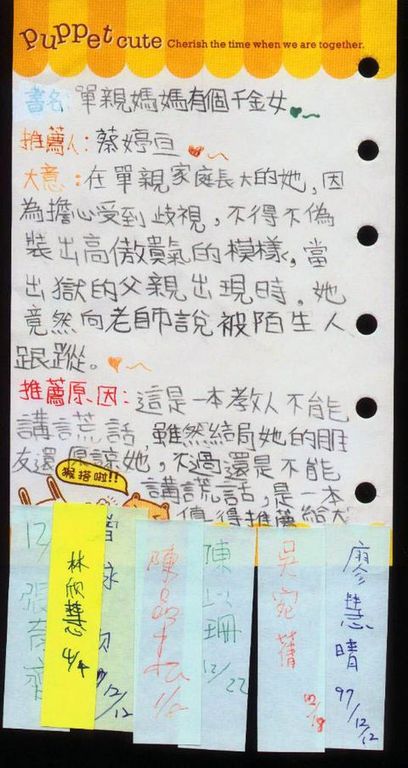 puppet cute Cherish the time when we are together.
書名:單親媽媽有個千金女
推薦人:蔡婷亘
大意:在單親家庭長大的她,因
為擔心受到歧視,不得不偽
裝出高傲貴氣的模樣,當
出獄的父親出現時,她
竟然向老師說被陌生人
跟蹤。
推薦原因:這是一本教人不能
講謊話 雖然結局她的朋
友還原諒她,不過還是不能
講謊話,是一本
值得推薦給大
猴搭啦!!
林欣慧 4/4
12/12
陳
1/2
陳以珊 12/22
吳宛蓓 12/18
廖慧晴 97/12/12